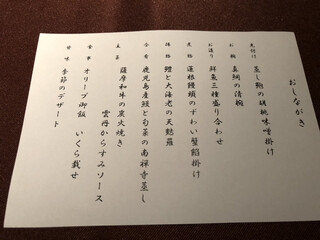 おしながき
先付け 蒸し鮑の胡桃味噌掛け
お椀 真鯛の清椀
お造り 鮮魚三種盛り合わせ
蓮根饅頭のずわい蟹餡掛け
鱧と大海老の天麩羅
合肴 鹿児島産鰻と旬菜の南禅寺蒸し
主菜 薩摩和牛の炭火焼き
雲丹からすみソース
食事 オリーブ御飯 いくら載せ
甘味 季節のデザート